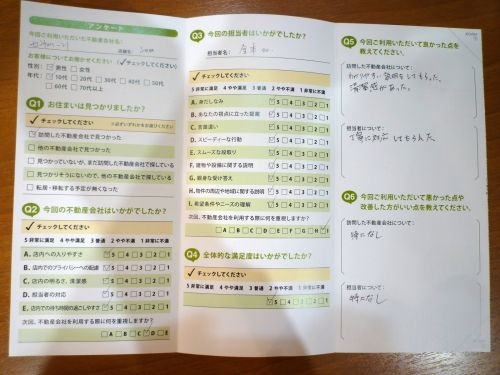 アンケート
今回ご利用いただいた不動産会社名:
店舗名:
お客様についてお聞かせください (✓チェックしてください)
性別: 男性 女性
年代: 10代 20代 30代 40代 50代
60代 70代以上
Q1 お住まいは見つかりましたか?
チェックしてください
訪問した不動産会社で見つかった
他の不動産会社で見つかった
見つかっていないが、まだ訪問した不動産会社で探している
見つかりそうにないので、他の不動産会社で探している
転居・移転する予定が無くなった
Q2 今回の不動産会社はいかがでしたか?
チェックしてください
5 非常に満足 4 やや満足 3 普通 2 やや不満 1 非常に不満
A. 店内への入りやすさ 5 4 3 2 1
B. 店内でのプライバシーへの配慮 5 4 3 2 1
C. 店内の明るさ、清潔感 5 4 3 2 1
D. 担当者の対応 5 4 3 2 1
E. 店内での待ち時間の過ごしやすさ 5 4 3 2 1
次回、不動産会社を利用する際に何を重視しますか?
A B C D E
Q3 今回の担当者はいかがでしたか?
担当者名:
チェックしてください
5 非常に満足 4 やや満足 3 普通 2 やや不満 1 非常に不満
A. 身だしなみ 5 4 3 2 1
B. あなたの視点に立った提案 5 4 3 2 1
C. 言葉遣い 5 4 3 2 1
D. スピーディーな行動 5 4 3 2 1
E. スムーズな段取り 5 4 3 2 1
F. 建物や設備に関する説明 5 4 3 2 1
G. 親身な受け答え 5 4 3 2 1
H. 物件の周辺や地域に関する説明 5 4 3 2 1
I. 希望条件やニーズの理解 5 4 3 2 1
次回、不動産会社を利用する際に何を重視しますか?
A B C D E F G H I
Q4 全体的な満足度はいかがでしたか?
チェックしてください
5 非常に満足 4 やや満足 3 普通 2 やや不満 1 非常に不満
5 4 3 2 1
Q5 今回ご利用いただいて良かった点を
教えてください。
訪問した不動産会社について:
わかりやすい説明をしてもらった。
清潔感があった。
担当者について:
丁寧に対応してもらえた
Q6 今回ご利用いただいて悪かった点や
改善した方がいい点を教えてください。
訪問した不動産会社について:
特になし
担当者について:
特になし